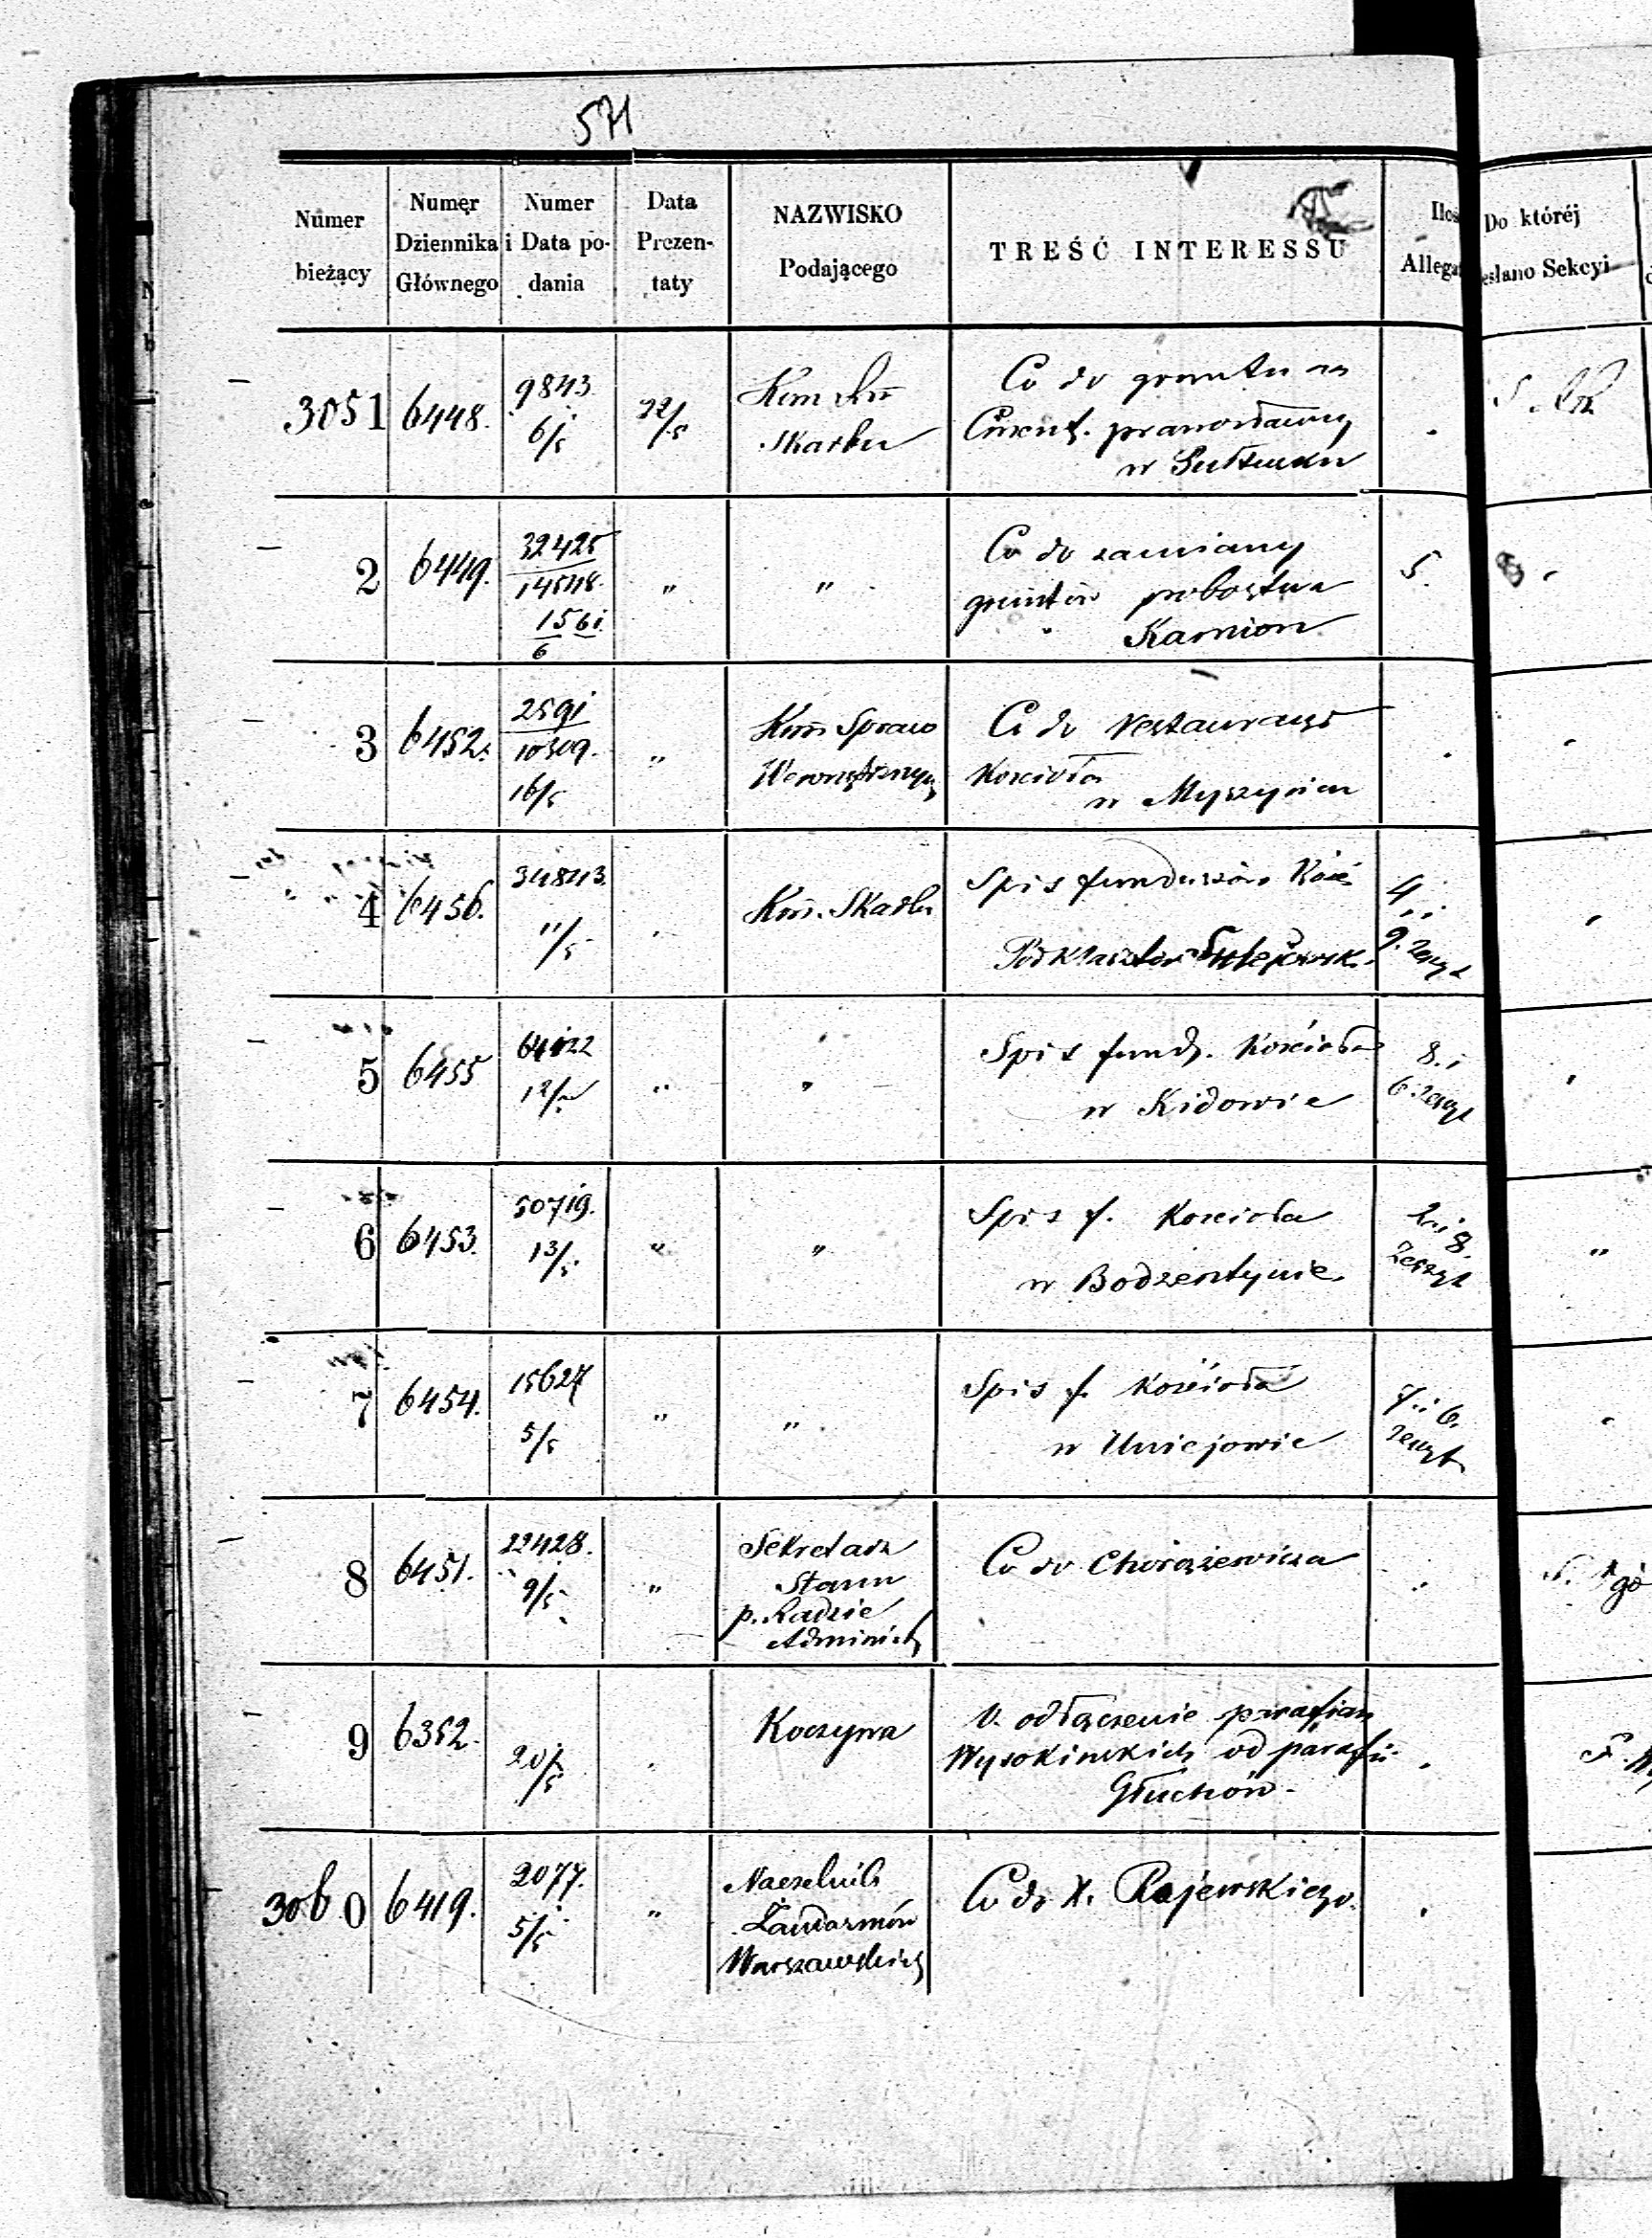 571
Numer bieżący
Numer Dziennika Głównego
Numer i Data podania
Data Prezentaty
NAZWISKO Podającego
TREŚĆ INTERESSU
Do któréj
esłano Sekcyi
3051 6448. 9843. 6/5 22/5
Skarbu
Co do gruntu na
Cment. prawosławny
w Pułtusku
2 6449. 32425 14548. " "
Co do zamiany
gruntów probostwa
Kamion
5.
3 6452. 2591 10309. 16/5 "
Kom. Spraw
Wewnętrznych
Co do restauracyi
Kościoła
w Myszyńcu
4 6456. 34843. 11/5
Kom. Skarbu
Spis funduszów Kość
Podklasztor Sulejowsk.
4 i
9. zeszyt
5 6455 12/5 "
Spis fund. Kościoła
w Kidowie
8. i
6 zeszyt
6 6453. 50719. 13/5 " "
Spis f. Kościoła
w Bodzentynie
2. i 8.
zeszyt
"
7 6454. 15627 5/5 " "
Spis f. Kościoła
w Uniejowie
i 6.
zeszyt
8 6451. 22428. 9/5 "
Sekretarz
Stanu
p. Radzie
Administ
Co do Chorążewicza
9 6352. 20/5
Koczyna
O. odłączenie parafian
Wysokińskich od parafii
Głuchów
3060 6419. 2077. 5/5 "
Naczelnik
Żandarmów
Warszawskich
Co do X. Rajewskiego.